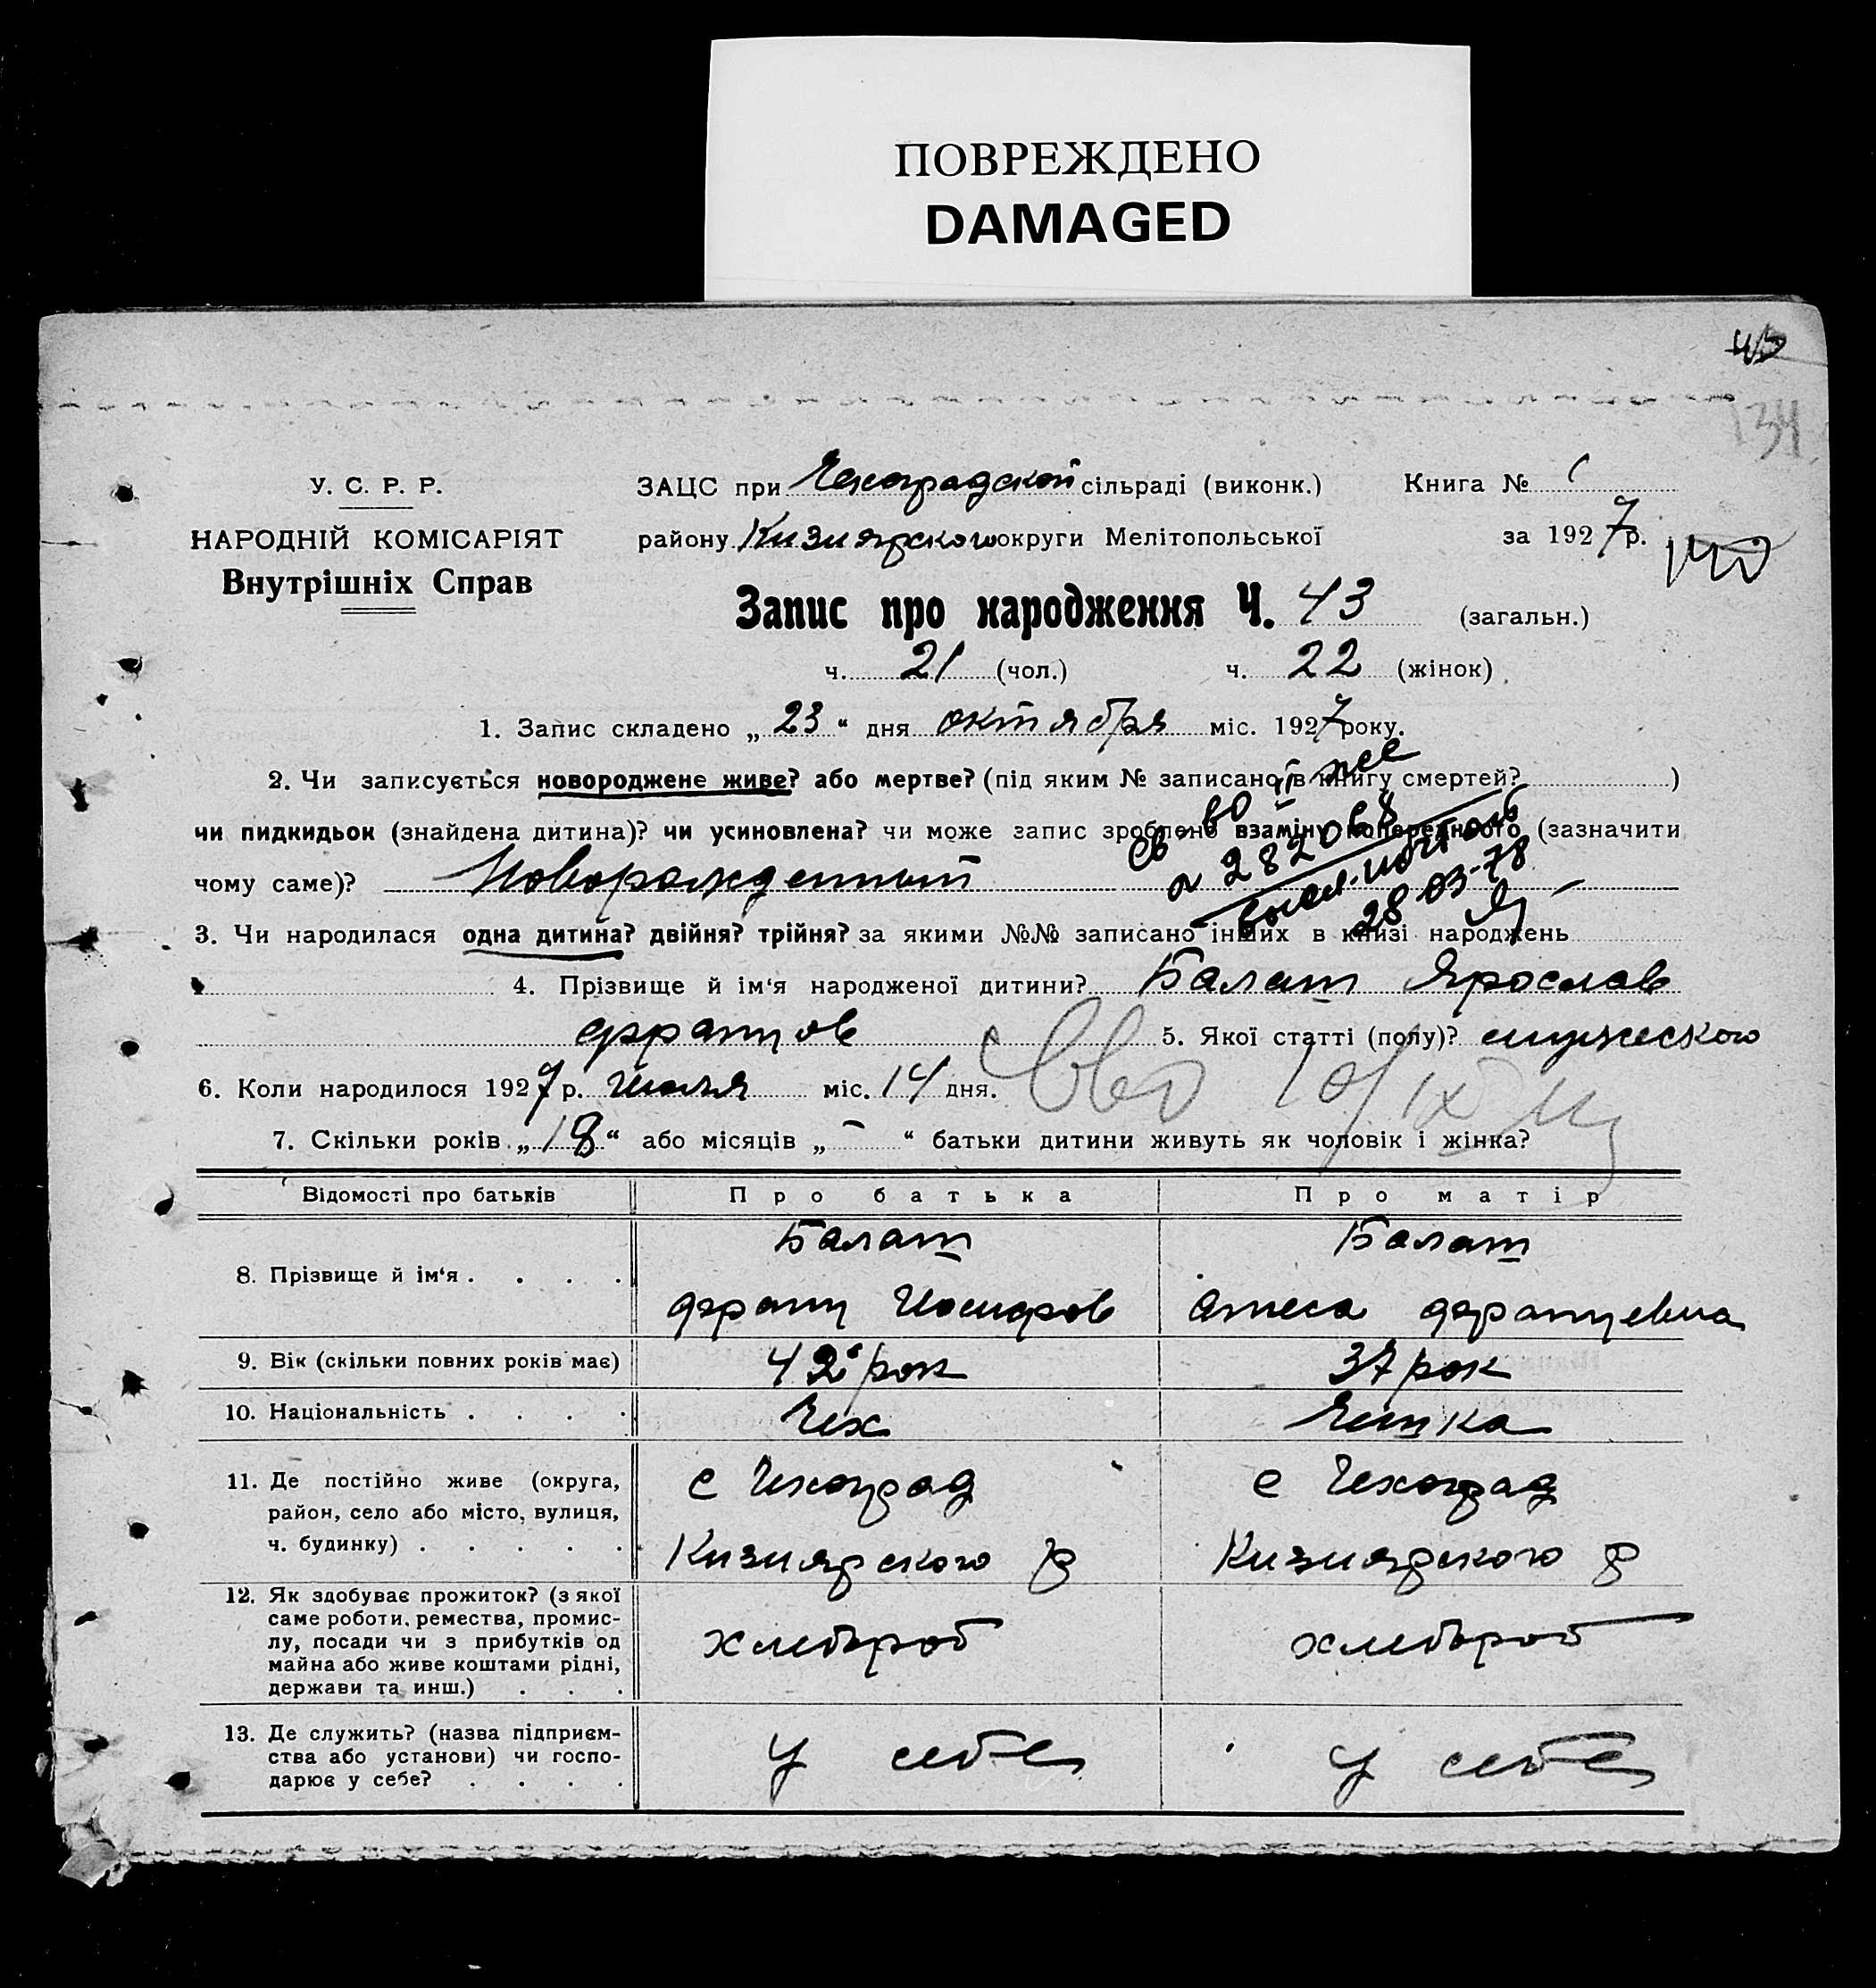 ПОВРЕЖДЕНО
DAMAGED
134
У. С. Р. Р.
НАРОДНІЙ КОМІСАРІЯТ
Внутрішніх Справ
ЗАЦС при Чехоградской сільраді (виконк.) Книга №
району Кизиярского округи Мелітопольської за 1927 р.
Запис про народження Ч. 43 (загальн.)
ч. 21 (чол.) ч. 22 (жінок)
1. Запис складено „ 23 “ дня октября міс. 1927 року.
2. Чи записується новороджене живе? або мертве? (під яким № записано в книгу смертей? )
чи пидкидьок (знайдена дитина)? чи усиновлена? чи може запис зроблено взаміну попереднього (зазначити
чому саме)? Новорожденный
28-03-78
3. Чи народилася одна дитина? двійня? трійня? за якими №№ записано інших в книзі народжень
4. Прізвище й ім‘я народженої дитини? Балаш Ярослав
Францов 5. Якої статті (полу)? мужеского
6. Коли народилося 1927 р. Июля міс. 14 дня.
7. Скільки років „ 18 “ або місяців „ - “ батьки дитини живуть як чоловік і жінка?
Відомості про батьків Про батька Про матір
8. Прізвище й ім‘я . . . . Балаш Франц Иосифов Балаш Анеса Францевна
9. Вік (скільки повних років має) 42 рок 37 рок
10. Національність . . . . Чех Чешка
11. Де постійно живе (округа, с Чехоград с Чехоград
район, село або місто, вулиця,
ч. будинку) . . . . . Кизиярского р Кизиярского р
12. Як здобуває прожиток? (з якої
саме роботи, ремества, промис-
лу, посади чи з прибутків од хлебороб хлебороб
майна або живе коштами рідні,
держави та инш.) . . .
13. Де служить? (назва підприєм-
ства або установи) чи госпо- у себе у себе
дарює у себе? . . . .